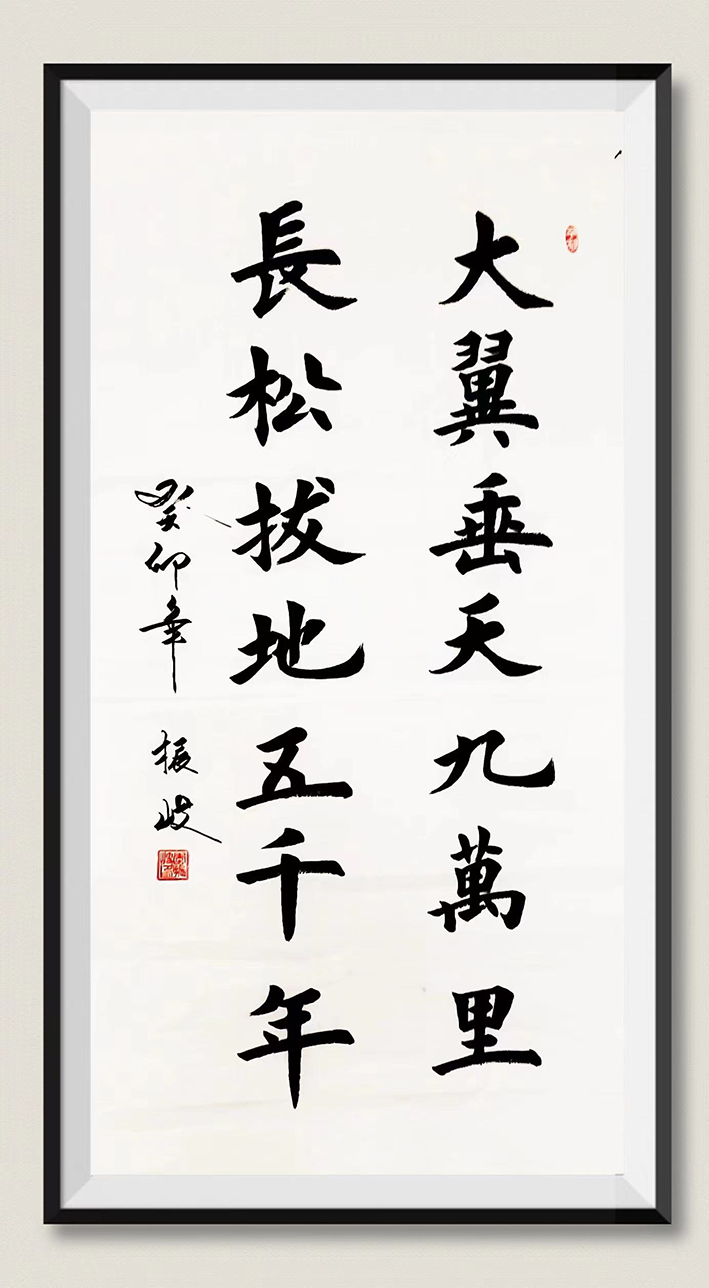 大翼垂天九萬里
長松拔地五千年
癸卯年 振岐